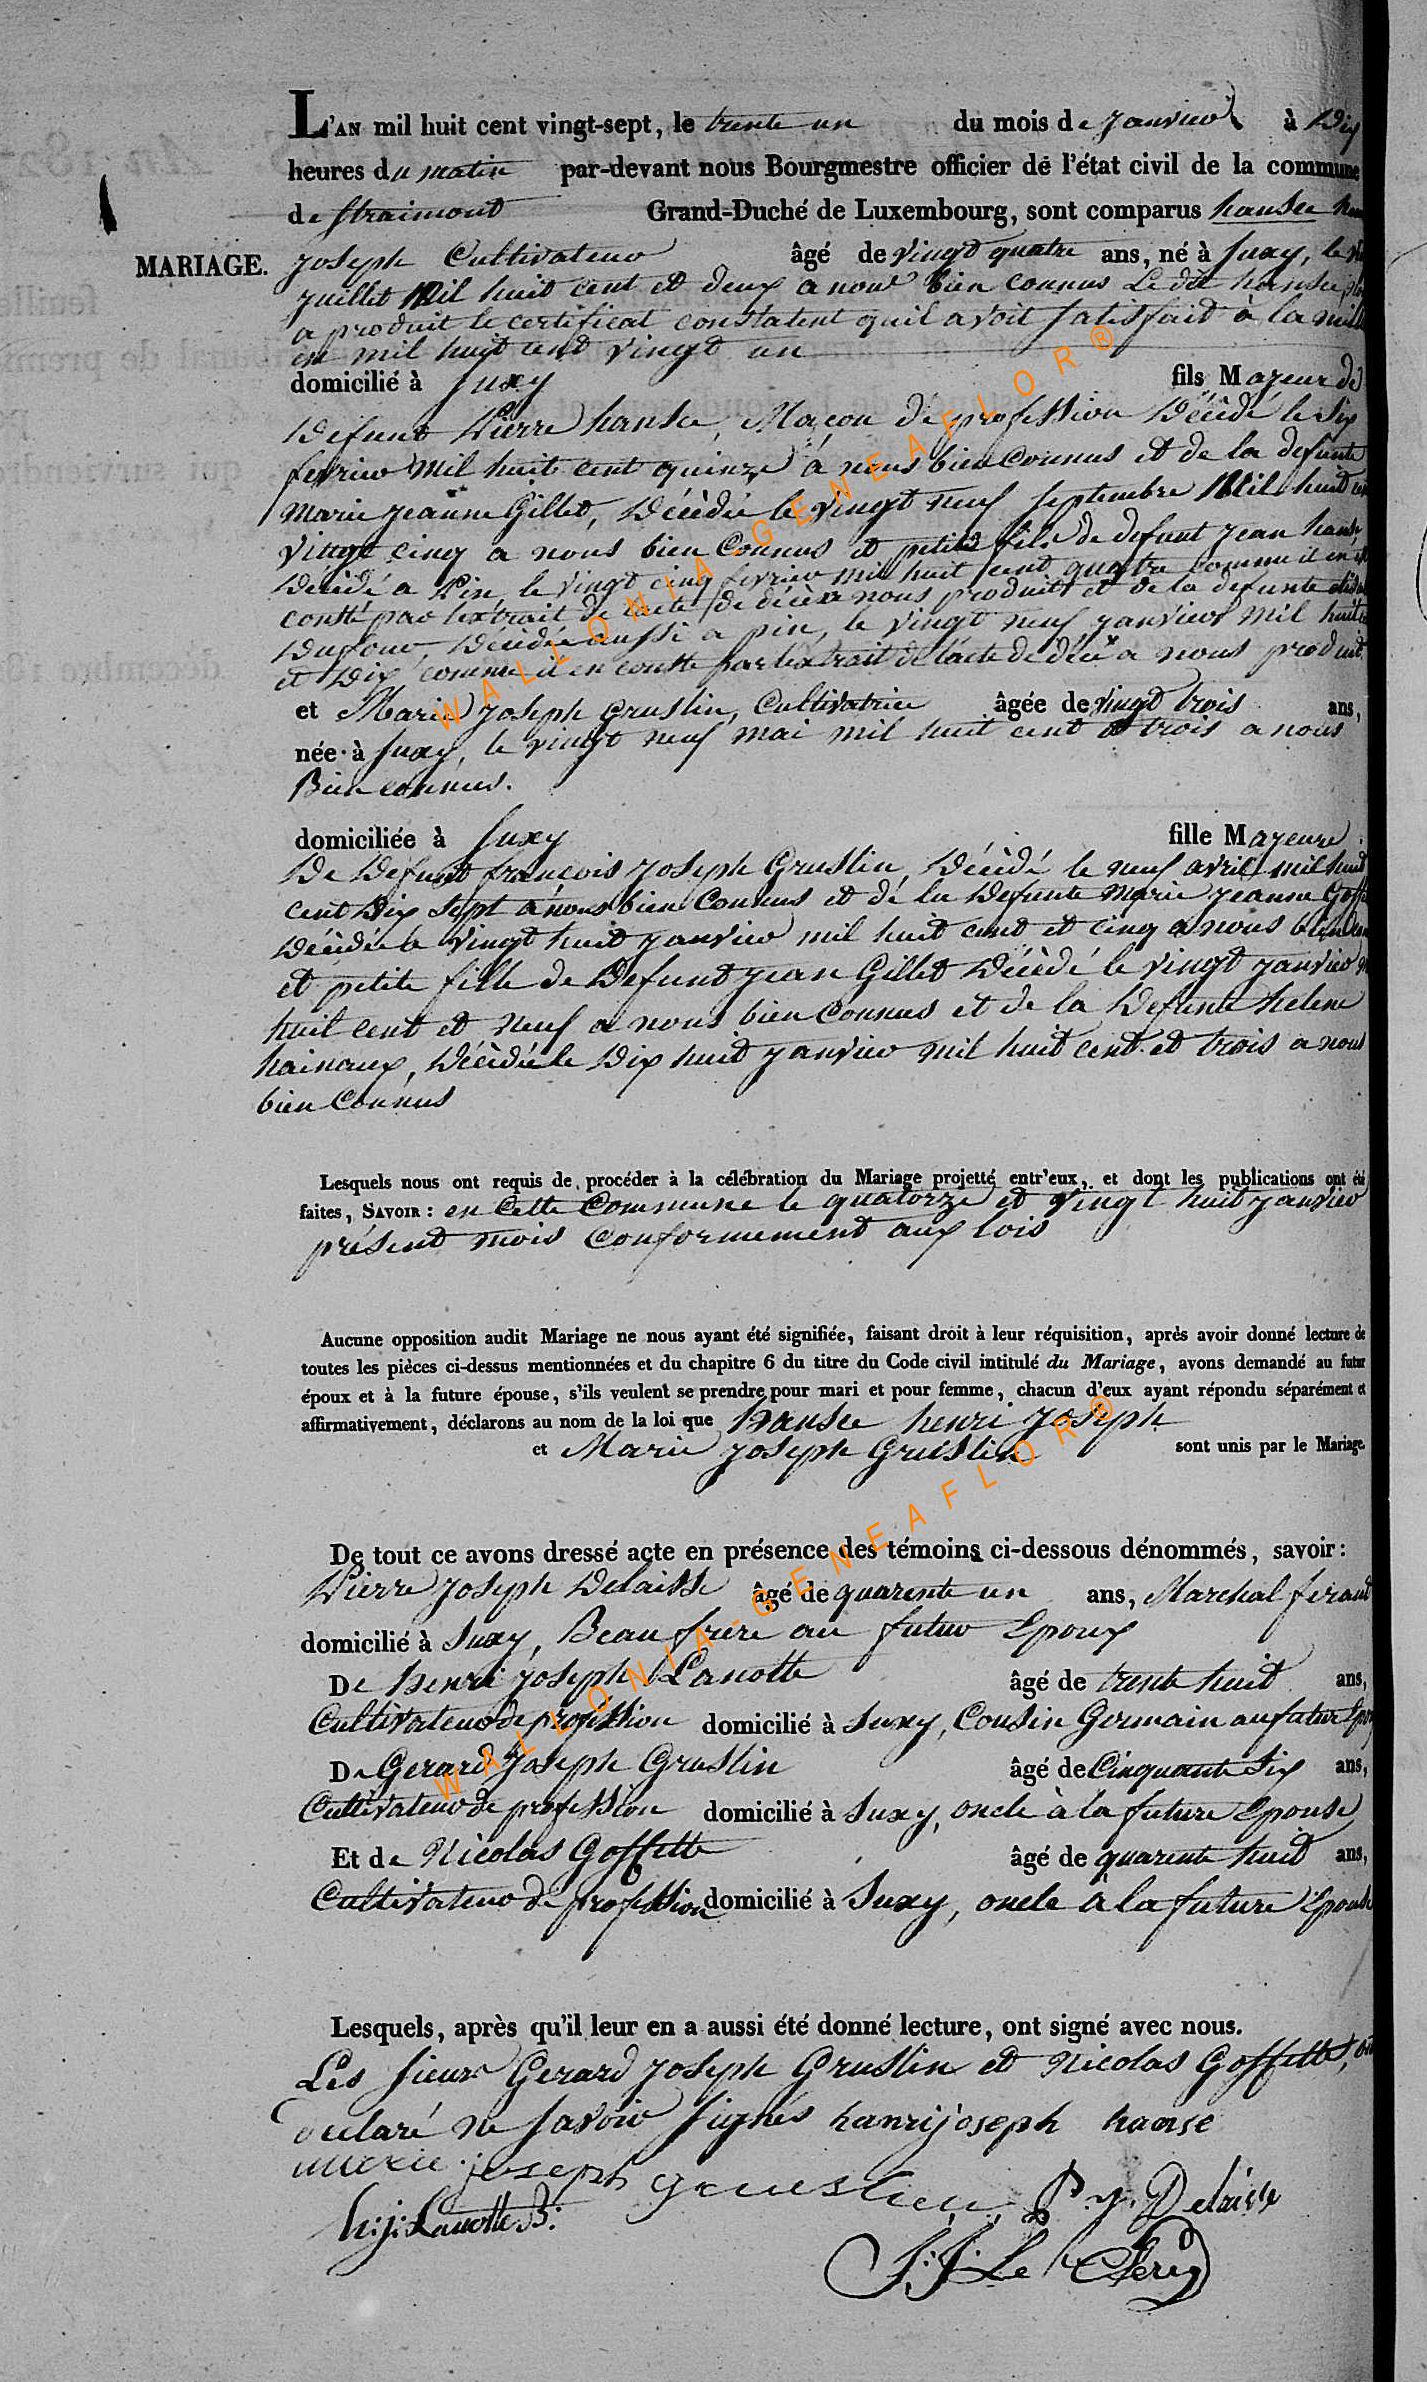 L'AN mil huit cent vingt-sept, le trente un du mois de janvier à Dix
heures du matin par-devant nous Bourgmestre officier de l'état civil de la commune
de Straimont Grand-Duché de Luxembourg, sont comparus hansee
MARIAGE. joseph Cultivateur âgé de vingt quatre ans, né à Suxy, le
juillet Mil huit cent et deux a nous bien connus Le dit hansee
a produit le certificat constatent quil avoit satisfait à la
en mil huit cent vingt un
domicilié à Suxy fils Majeur de
Defunt Pierre hansee, Maçon de profession Décédé le Six
fevrier mil huit cent quinze a nous bien connus et de la defunte
Marie jeanne Gillet, Décédée le vingt neuf septembre Mil huit
vingt cinq a nous bien connus et petits fils de defunt jean
Décédé a Pin, le vingt cinq fevrier mil huit cent quatre comme il en
constte par l'extrait de l'acte de décès a nous produit et de la defunte
Dufour, Décédée aussi a pin, le vingt neuf janvier mil huit
et Dix comme il en constte par l'extrait de l'acte de décè a nous produit
et Marie joseph Grustin, Cultivatrice âgée de vingt trois ans,
née à Suxy, le vingt neuf mai mil huit cent et trois a nous
Bien connus.
domiciliée à Suxy fille Majeure
De Defunt francois joseph Grustin, Décédé le neuf avril mil huit
cent Dix sept a nous bien connus et dé la Defunte Marie jeanne
Décédée le vingt huit janvier mil huit cent et cinq a nous bien
et petite fille de Defunt jean Gillet Décédé le vingt janvier
huit cent et neuf a nous bien connus et de la Defunte helene
hainaux, Décédée le Dix huit janvier mil huit cent et trois a nous
bien connus
Lesquels nous ont requis de procéder à la célébration du Mariage projetté entr'eux, et dont les publications ont été
faites, SAVOIR : en cette Commune le quatorze et vingt huit janvier
présent mois conformement aux lois
Aucune opposition audit Mariage ne nous ayant été signifiée, faisant droit à leur réquisition, après avoir donné lecture de
toutes les pièces ci-dessus mentionnées et du chapitre 6 du titre du Code civil intitulé du Mariage, avons demandé au futur
époux et à la future épouse, s'ils veulent se prendre pour mari et pour femme, chacun d'eux ayant répondu séparément et
affirmativement, déclarons au nom de la loi que Hansee henri joseph
et Marie joseph Grustin sont unis par le Mariage.
De tout ce avons dressé acte en présence des témoins ci-dessous dénommés, savoir :
Pierre joseph Delaisse âgé de quarente un ans, Marchal ferant
domicilié à Suxy, Beau frere au futur Epoux
De Henri joseph Lanotte âgé de trente huit ans,
Cultivateur de profession domicilié à Suxy, Cousin Germain au futur
De Gerard joseph Grustin âgé de Cinquante Six ans,
Cultivateur de profession domicilié à Suxy, oncle à la future Epouse
Et de Nicolas Goffette âgé de quarente huit ans,
Cultivateur de profession domicilié à Suxy, oncle à la future Epouse
Lesquels, après qu'il leur en a aussi été donné lecture, ont signé avec nous.
Les sieurs Gerard joseph Grustin et Nicolas Goffette,
declaré ne savoir signés hanrijoseph hanse
marie joseph grustien P. j. Delaisse
h: j: Lanotte
J: J: Le Clercq
WALLONIA-GENEAFLOR®
WALLONIA-GENEAFLOR®